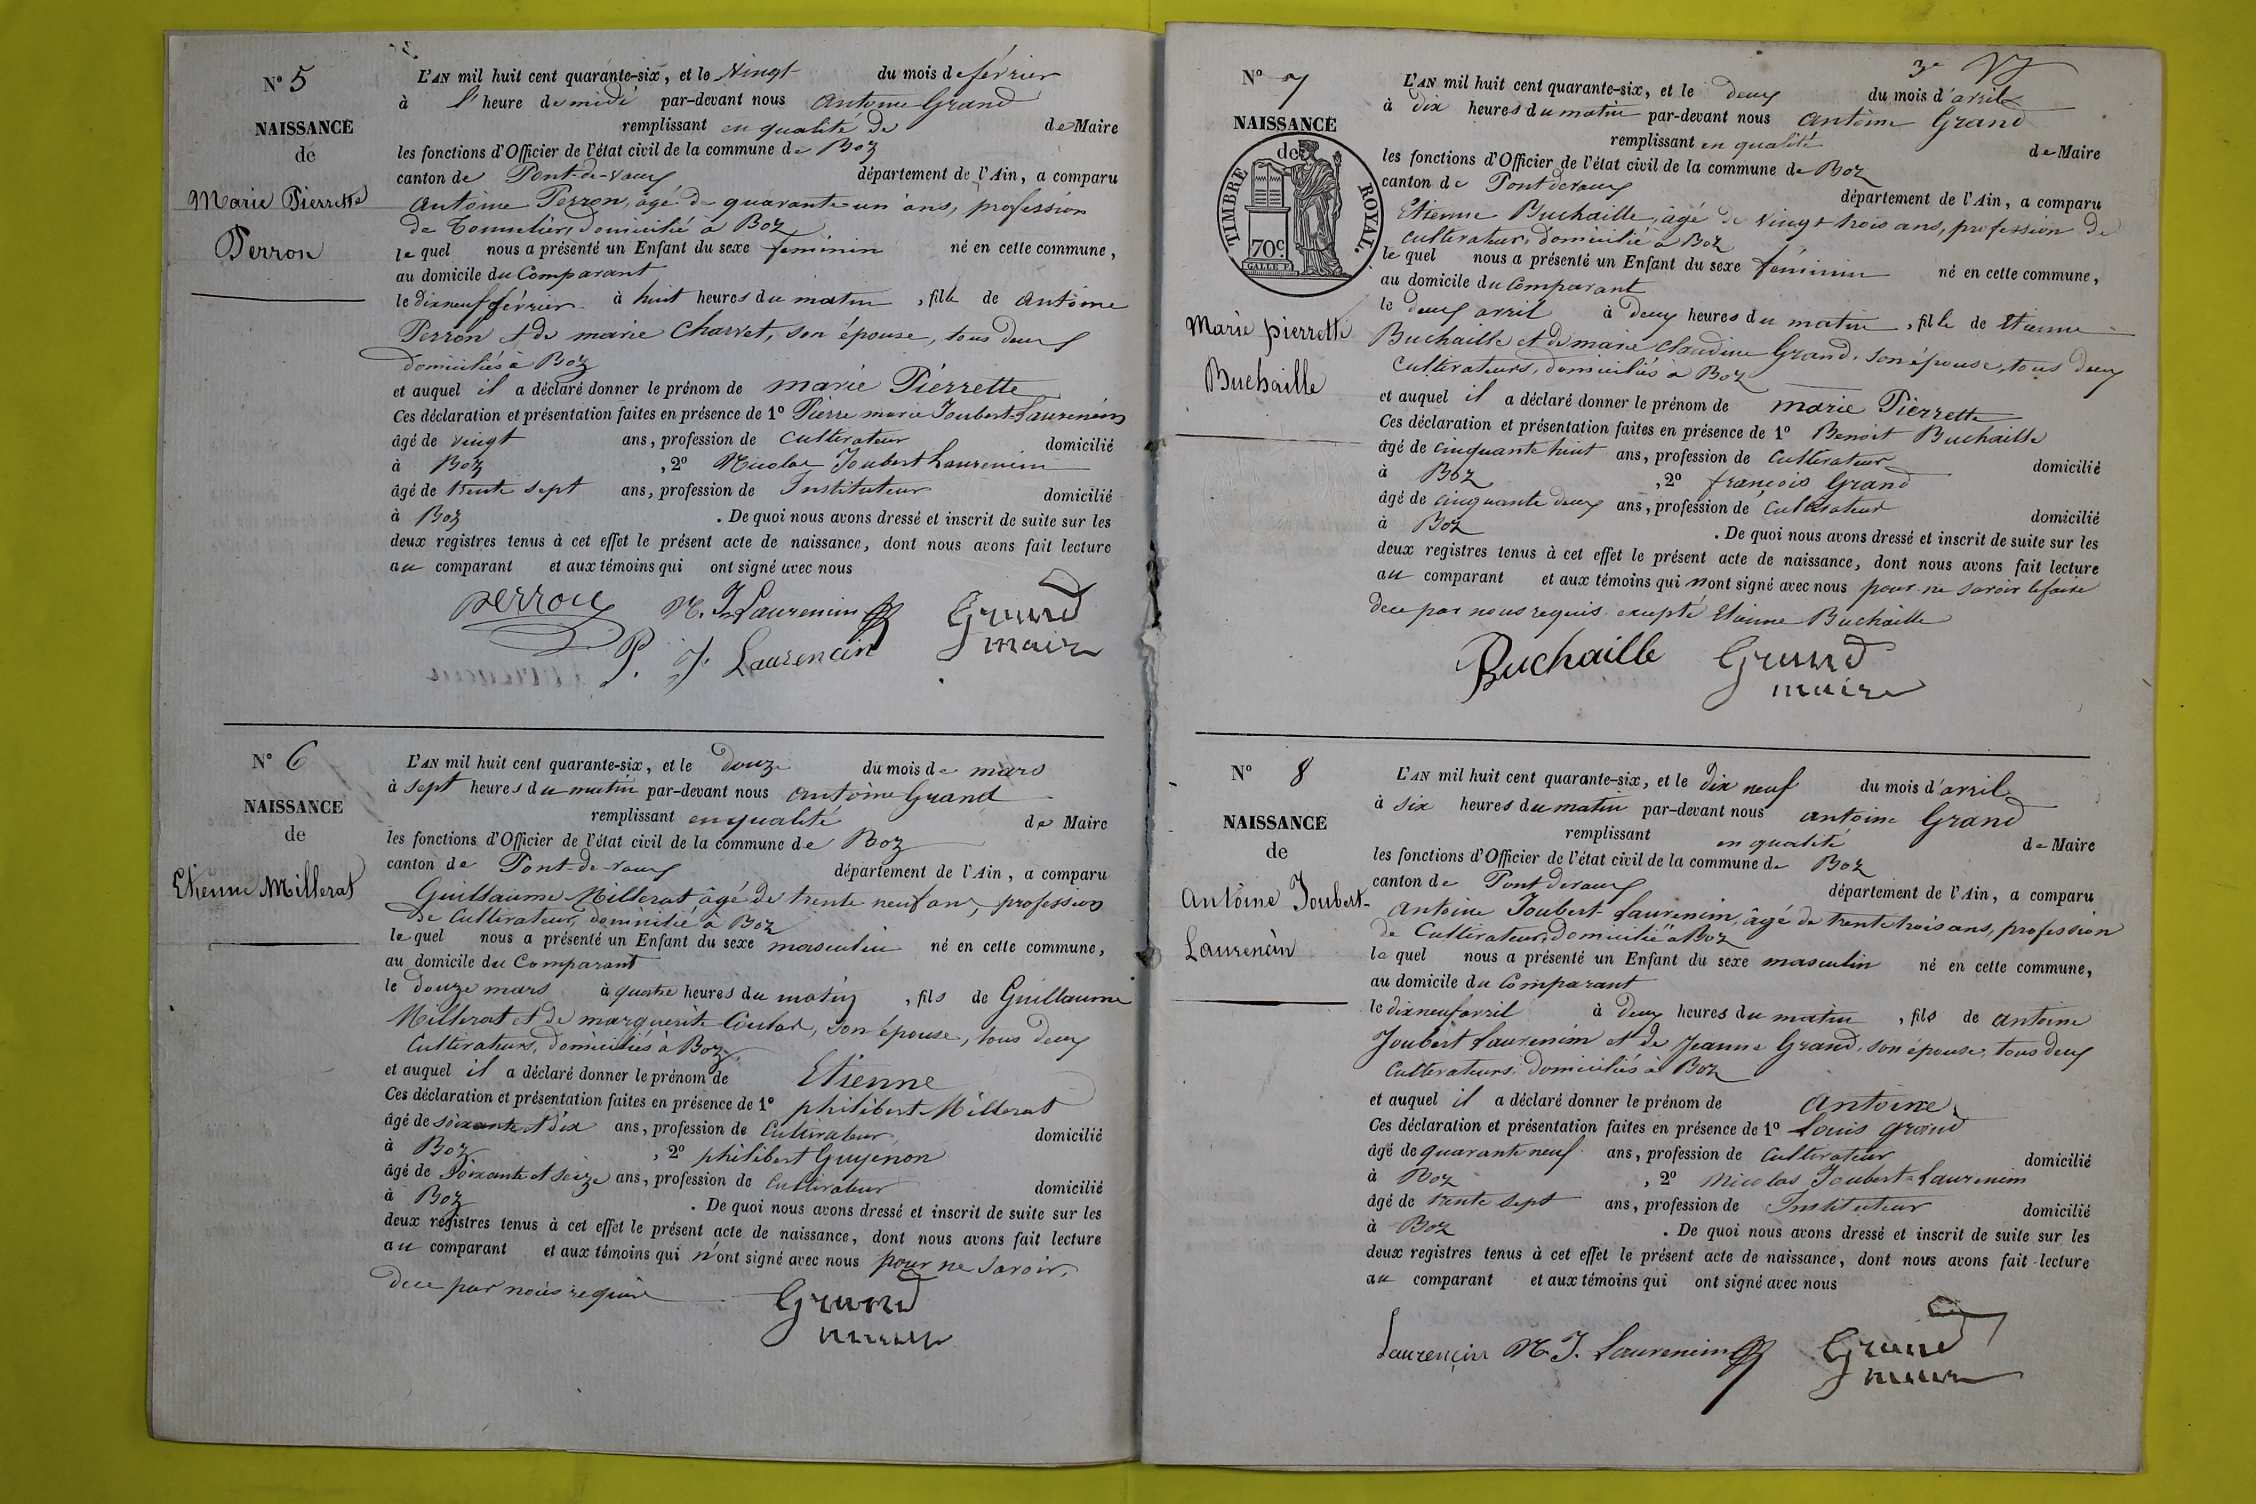 N° 5
NAISSANCE
de
Marie Pierrette
Perron
L'AN mil huit cent quarante-six, et le vingt du mois de février
à l'heure de midi par-devant nous antoine Grand
remplissant en qualité de de Maire
les fonctions d'Officier de l'état civil de la commune de Boz
canton de Pont-de-vaux département de l'Ain, a comparu
antoine Perron, âgé de quarante un ans, profession
de Tonnelier, domicilié à Boz
le quel nous a présenté un Enfant du sexe féminin né en cette commune,
au domicile du Comparant
le dixneuf février à huit heures du matin, fille de antoine
Perron et de marie Charvet, son épouse, tous deux
domiciliés à Boz
et auquel il a déclaré donner le prénom de marie Pierrette
Ces déclaration et présentation faites en présence de 1° Pierre marie Joubert-Laurencin
âgé de vingt ans, profession de cultivateur domicilié
à Boz, 2° Nicolas Joubert Laurencin
âgé de trente sept ans, profession de Instituteur domicilié
à Boz. De quoi nous avons dressé et inscrit de suite sur les
deux registres tenus à cet effet le présent acte de naissance, dont nous avons fait lecture
au comparant et aux témoins qui ont signé avec nous
perron N. J. Laurencin Grand
P. J. Laurencin maire
N° 6
NAISSANCE
de
Etienne Millerat
L'AN mil huit cent quarante-six, et le douze du mois de mars
à sept heures du matin par-devant nous antoine Grand
remplissant en qualité de Maire
les fonctions d'Officier de l'état civil de la commune de Boz
canton de Pont-de-vaux département de l'Ain, a comparu
Guillaume Millerat, âgé de trente neuf ans, profession
de Cultivateur, domicilié à Boz
le quel nous a présenté un Enfant du sexe masculin né en cette commune,
au domicile du Comparant
le douze mars à quatre heures du matin, fils de Guillaume
Millerat et de marguerite Coulas, son épouse, tous deux
Cultivateurs, domiciliés à Boz
et auquel il a déclaré donner le prénom de Etienne
Ces déclaration et présentation faites en présence de 1° philibert Millerat
âgé de soixante et dix ans, profession de Cultivateur domicilié
à Boz, 2° philibert Guyenon
âgé de soixante et seize ans, profession de Cultivateur domicilié
à Boz. De quoi nous avons dressé et inscrit de suite sur les
deux registres tenus à cet effet le présent acte de naissance, dont nous avons fait lecture
au comparant et aux témoins qui n'ont signé avec nous pour ne savoir,
dece par nous requis
Grand
maire
3e
N° 7
NAISSANCE
de
TIMBRE ROYAL.
70c
Marie pierrette
Buchaille
L'AN mil huit cent quarante-six, et le deux du mois d'avril
à dix heures du matin par-devant nous antoine Grand
remplissant en qualité de Maire
les fonctions d'Officier de l'état civil de la commune de Boz
canton de Pont devaux département de l'Ain, a comparu
Etienne Buchaille, âgé de vingt trois ans, profession de
cultivateur, domicilié à Boz
le quel nous a présenté un Enfant du sexe féminin né en cette commune,
au domicile du Comparant
le deux avril à deux heures du matin, fille de Etienne
Buchaille et de marie claudine Grand, son épouse, tous deux
Cultivateurs, domiciliés à Boz
et auquel il a déclaré donner le prénom de marie Pierrette
Ces déclaration et présentation faites en présence de 1° Benoit Buchaille
âgé de cinquante huit ans, profession de Cultivateur domicilié
à Boz, 2° françois Grand
âgé de cinquante deux ans, profession de Cultivateur domicilié
à Boz. De quoi nous avons dressé et inscrit de suite sur les
deux registres tenus à cet effet le présent acte de naissance, dont nous avons fait lecture
au comparant et aux témoins qui n'ont signé avec nous pour ne savoir le faire
dece par nous requis. excepté Etienne Buchaille
Buchaille Grand
maire
N° 8
NAISSANCE
de
Antoine Joubert-
Laurencin
L'AN mil huit cent quarante-six, et le dix neuf du mois d'avril
à six heures du matin par-devant nous antoine Grand
remplissant en qualité de Maire
les fonctions d'Officier de l'état civil de la commune de Boz
canton de Pont devaux département de l'Ain, a comparu
antoine Joubert-Laurencin, âgé de trente trois ans, profession
de Cultivateur, domicilié à Boz
le quel nous a présenté un Enfant du sexe masculin né en cette commune,
au domicile du Comparant
le dixneuf avril à deux heures du matin, fils de antoine
Joubert Laurencin et de Jeanne Grand, son épouse, tous deux
Cultivateurs, domiciliés à Boz
et auquel il a déclaré donner le prénom de antoine
Ces déclaration et présentation faites en présence de 1° Louis Grand
âgé de quarante neuf ans, profession de Cultivateur domicilié
à Boz, 2° Nicolas Joubert-Laurencin
âgé de trente sept ans, profession de Instituteur domicilié
à Boz. De quoi nous avons dressé et inscrit de suite sur les
deux registres tenus à cet effet le présent acte de naissance, dont nous avons fait lecture
au comparant et aux témoins qui ont signé avec nous
Laurençin N. J. Laurencin Grand
maire